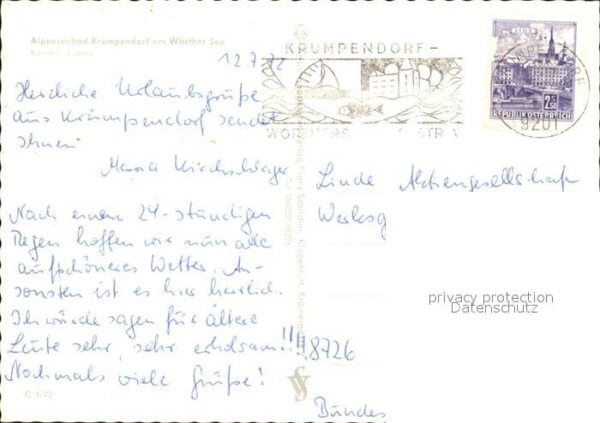 Alpenseebad Krumpendorf am Wörther See
Kärnten, Austria
12.7.72
Herzliche Urlaubsgrüße
aus Krumpendorf sendet
Ihnen
Maria Kirchschlager
Nach einem 24-stündigen
Regen hoffen wir nun alle
auf schöneres Wetter. An-
sonsten ist es hier herrlich.
Ich würde sagen für ältere
Leute sehr, sehr erholsam!!!
Nochmals viele Grüße!
C 1/72
KRUMPENDORF-
LINZ
2.50
REPUBLIK ÖSTERREICH
9201
Linde Aktiengesellschaft
Werksg
8726
Bundes
privacy protection
Datenschutz